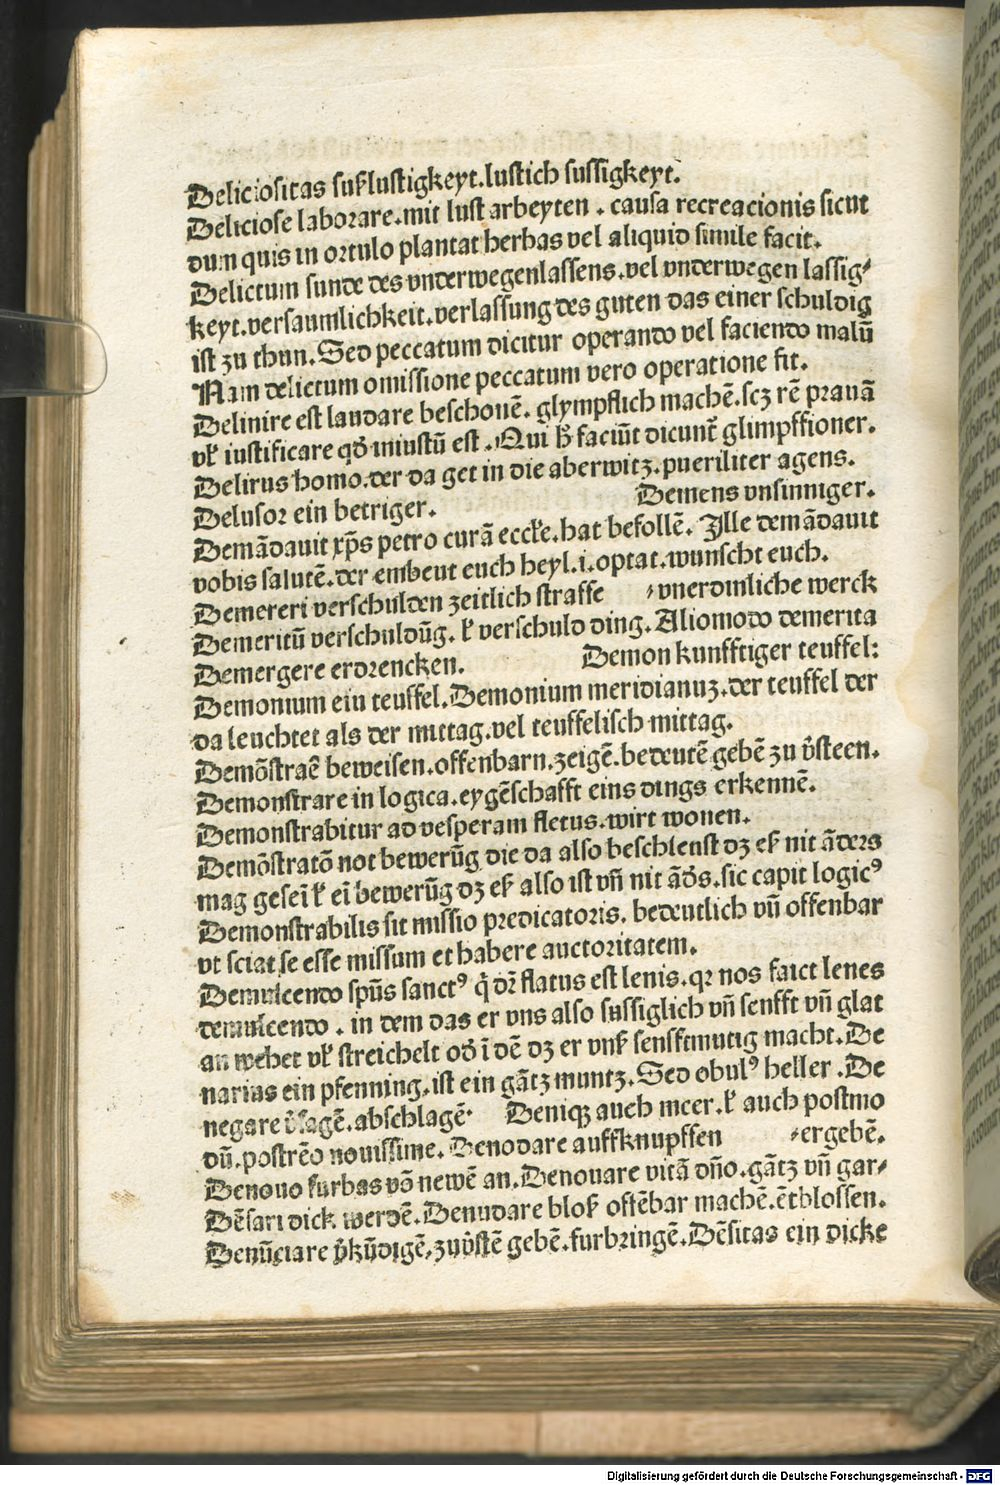 Deliciositas suſʒlustigkeyt.lustich sussigkeyt.
Deliciose laborare.mit lust arbeyten . causa recreacionis sicut
dum quis in ortulo plantat herbas vel aliquid simile facit.
Delictum sunde des vnderwegenlassens.vel vnderwegen lassig⸗
keyt.versaumlichkeit.verlassung des guten das einer schuldig
ist zu thun.Sed peccatum dicitur operando vel faciendo malū
Nam delictum omissione peccatum vero operatione fit.
Delinire est laudare beschonē. glympflich machē.scꝫ rē prauā
vꝉ iustificare qđ iniustū est . Qui h̄ faciūt dicunt̄ glimpffioner.
Delirus homo.der da get in die aberwitz.pueriliter agens.
Delusor ein betriger. Demens vnsinniger.
Demādauit xp̄s petro curā eccl̄e.hat befollē. Ille demādauit
vobis salutē.der embeut euch heyl.i.optat.wunscht euch.
Demereri verschulden zeitlich straffe ⸗vnerdinliche werck
Demeritū verschuldūg. ꝉ verschuld ding. Aliomodo demerita
Demergere erdrencken. Demon kunfftiger teuffel:
Demonium ein teuffel.Demonium meridianuz.der teuffel der
da leuchtet als der mittag.vel teuffelisch mittag.
Demōstraē beweisen.offenbarn.zeigē.bedeutē gebē zu v̄steen.
Demonstrare in logica.eygēschafft eins dings erkennē.
Demonstrabitur ad vesperam fletus.wirt wonen.
Demōstratō not bewerūg die da also beschleust dꝫ eß nit āders
mag gesei ꝉ ei bewerūg dꝫ eß also ist vn̄ nit ād̄s.sic capit logicꝰ
Demonstrabilis sit missio predicatoris. bedeutlich vn̄ offenbar
vt sciat se esse missum et habere auctoritatem.
Demulcendo sp̄us sanctꝰ q̄ dr̄ flatus est lenis.qꝛ nos faict lenes
demulcendo . in dem das er vns also sussiglich vn̄ senfft vn̄ glat
an wehet vꝉ streichelt od̄ ī dē dꝫ er vnß senfftmutig macht.De
narius ein pfenning.ist ein gātz muntz.Sed obulꝰ heller .De
negare v̄sagē.abschlagē. Deniqꝫ auch mcer.ꝉ auch postmo
dū.postrēo nouissime. Denodare auffknupffen ⸗ergebē.
Denouo furbas vō newē an.Denouare vitā dn̄o.gātz vn̄ gar⸗
Dēsari dick werdē.Denudare bloß offēbar machē.ētblossen.
Denūciare v̄kūdigē.zuv̄stē gebē.furbringē.Dēsitas ein dicke
Digitalisierung gefördert durch die Deutsche Forschungsgemeinschaft - DFG